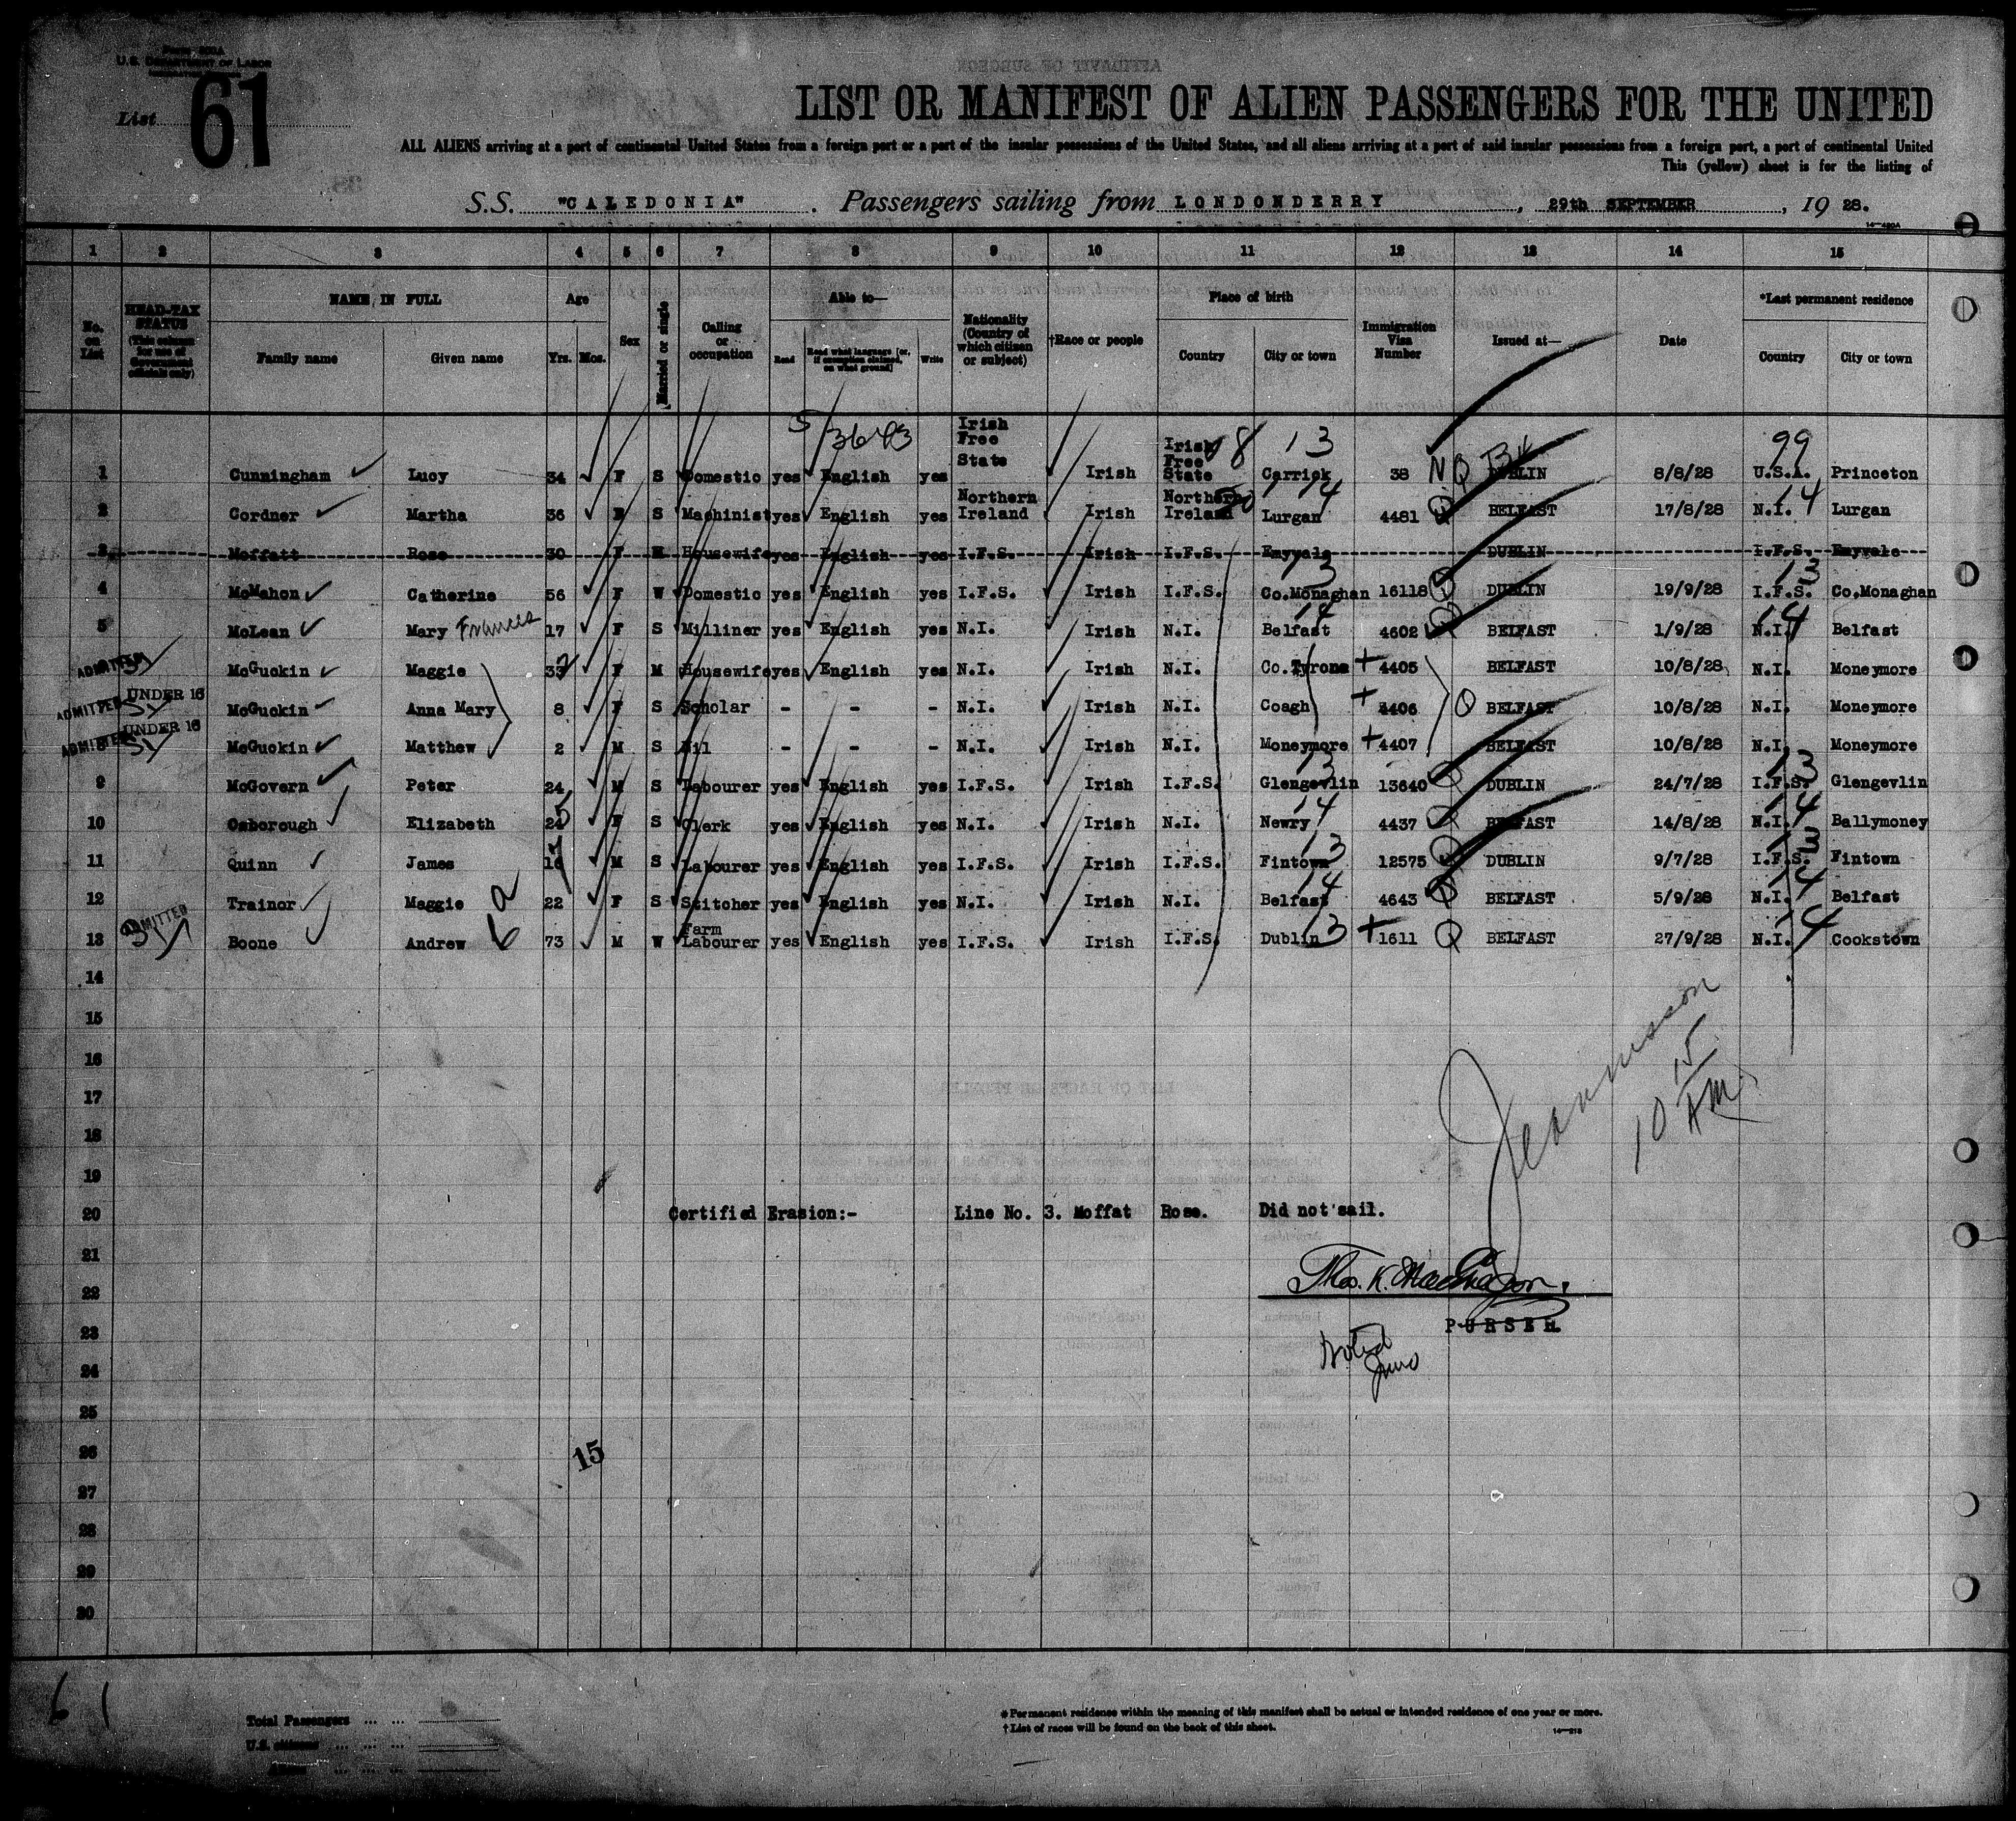 Form 500A
U.S. DEPARTMENT OF LABOR
List 61
LIST OR MANIFEST OF ALIEN PASSENGERS FOR THE UNITED
ALL ALIENS arriving at a port of continental United States from a foreign port or a port of the insular possessions of the United States, and all aliens arriving at a port of said insular possessions from a foreign port, a port of continental United
This (yellow) sheet is for the listing of
S.S. "CALEDONIA". Passengers sailing from LONDONDERRY, 29th SEPTEMBER, 19 28.
14—420A
1 2 3 4 5 6 7 8 9 10 11 12 13 14 15
No. on List
HEAD-TAX STATUS (This column for use of Government officials only)
NAME IN FULL Family name Given name
Age Yrs. Mos.
Sex
Married or single
Calling or occupation
Able to— Read Read what language [or, if exemption claimed, on what ground] Write
Nationality (Country of which citizen or subject)
†Race or people
Place of birth Country City or town
Immigration Visa Number
Issued at—
Date
*Last permanent residence Country City or town
5 3693 18 13 99
1 Cunningham Lucy 34 F S Domestic yes English yes Irish Free State Irish Irish Free State Carrick 38 NQ DUBLIN 8/8/28 U.S.A. Princeton
2 Cordner Martha 36 F S Machinist yes English yes Northern Ireland Irish Northern Ireland Lurgan 14 4481 Q BELFAST 17/8/28 N.I. 14 Lurgan
3 Moffatt Rose 30 F M Housewife yes English yes I.F.S. Irish I.F.S. Emyvale DUBLIN I.F.S. Emyvale
4 McMahon Catherine 56 F W Domestic yes English yes I.F.S. Irish I.F.S. Co.Monaghan 13 16118 Q DUBLIN 19/9/28 I.F.S. 13 Co.Monaghan
5 McLean Mary Frances 17 F S Milliner yes English yes N.I. Irish N.I. Belfast 14 4602 BELFAST 1/9/28 N.I. 14 Belfast
ADMITTED McGuckin Maggie 33 F M Housewife yes English yes N.I. Irish N.I. Co. Tyrone + 4405 BELFAST 10/8/28 N.I. Moneymore
ADMITTED UNDER 16 McGuckin Anna Mary 8 F S Scholar - - - N.I. Irish N.I. Coagh + 4406 Q BELFAST 10/8/28 N.I. Moneymore
ADMITTED UNDER 16 8 McGuckin Matthew 2 M S Nil - - - N.I. Irish N.I. Moneymore + 4407 BELFAST 10/8/28 N.I. Moneymore
9 McGovern Peter 24 M S Labourer yes English yes I.F.S. Irish I.F.S. Glengevlin 13 13640 DUBLIN 24/7/28 I.F.S. 13 Glengevlin
10 Osborough Elizabeth 25 F S Clerk yes English yes N.I. Irish N.I. Newry 14 4437 BELFAST 14/8/28 N.I. 14 Ballymoney
11 Quinn James 16 M S Labourer yes English yes I.F.S. Irish I.F.S. Fintown 13 12575 DUBLIN 9/7/28 I.F.S. 13 Fintown
12 Trainor Maggie 22 F S Stitcher yes English yes N.I. Irish N.I. Belfast 14 4643 BELFAST 5/9/28 N.I. 14 Belfast
ADMITTED 13 Boone Andrew 73 M W Farm Labourer yes English yes I.F.S. Irish I.F.S. Dublin 13 + 1611 Q BELFAST 27/9/28 N.I. 14 Cookstown
14
15
16
10 15 AM
17
18
19
20 Certified Erasion:- Line No. 3. Moffat Rose. Did not sail.
21
22 Thos. K.
23 PURSER.
Noted
24
25
26 15
27
28
29
30
61
Total Passengers ... ...
U.S. citizens ... ... ...
Aliens ... ... ...
*Permanent residence within the meaning of this manifest shall be actual or intended residence of one year or more.
†List of races will be found on the back of this sheet.
14—213